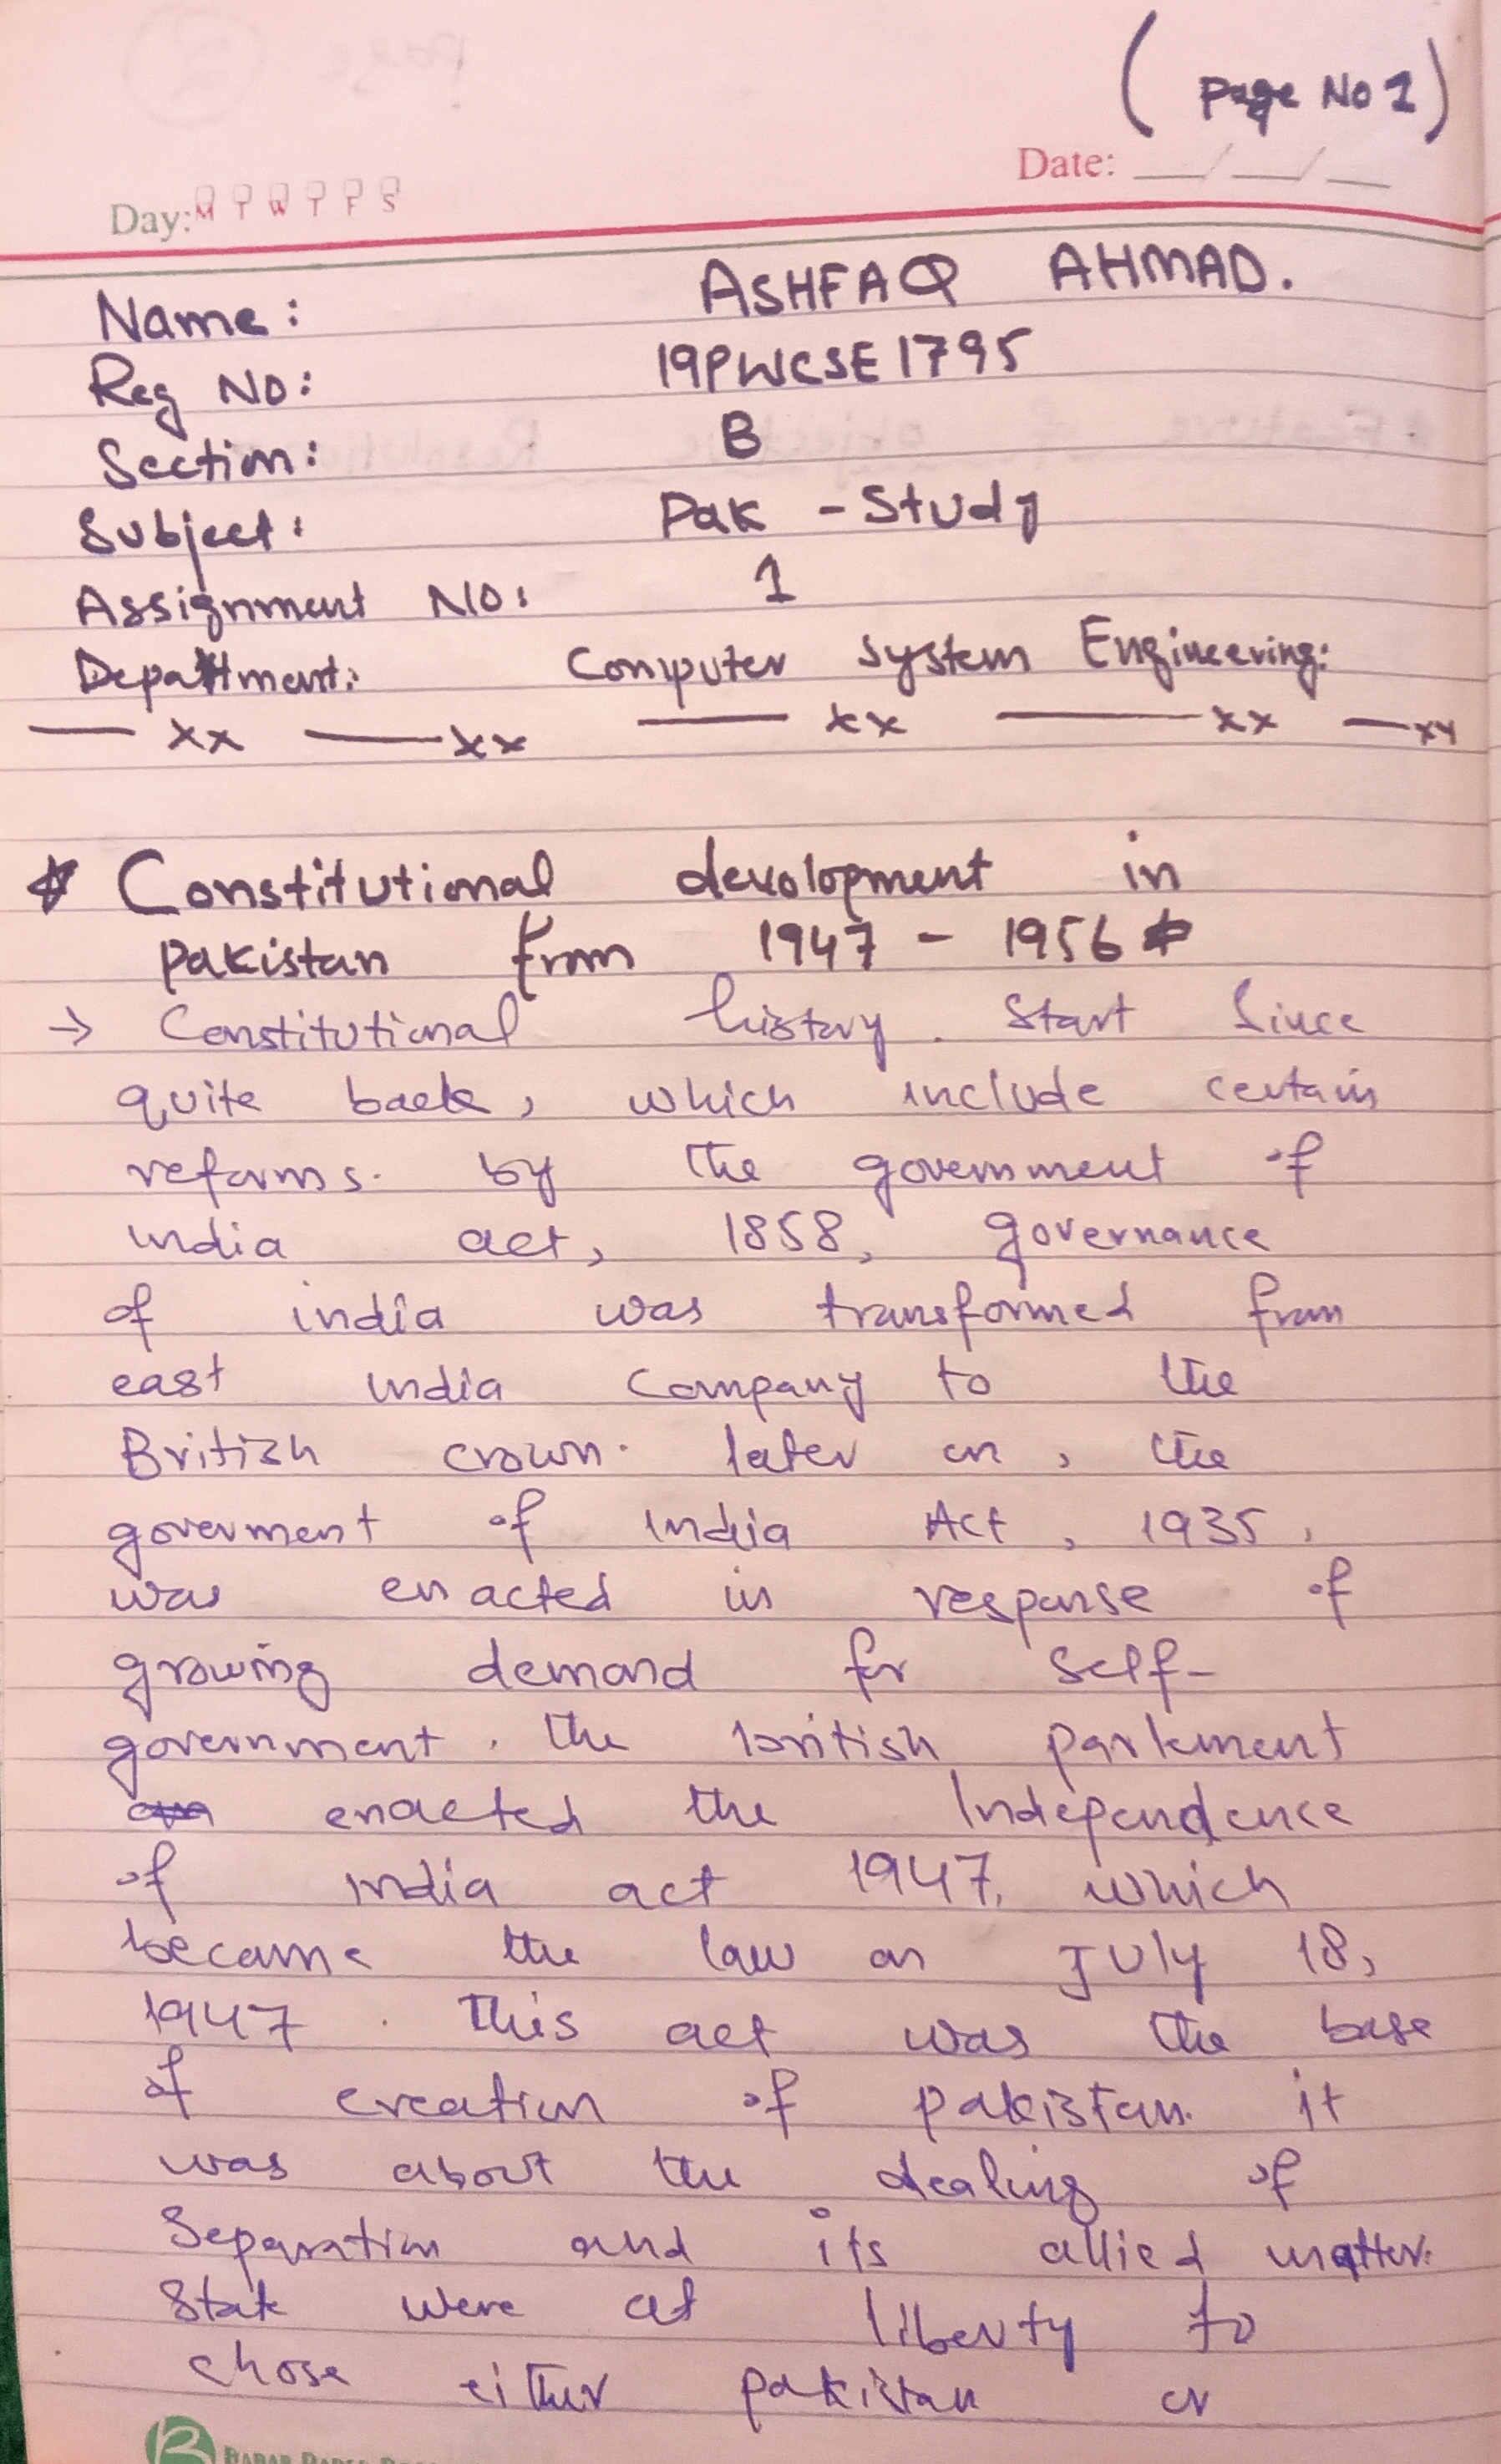 (Page No 1)
Date: __/__/__
Day: M T W T F S
Name: ASHFAQ AHMAD.
Reg No: 19PWCSE1795
Section: B
Subject: Pak - Study
Assignment No: 1
Department: Computer System Engineering:
— xx — xx — xx — xx — xx
Constitutional devolopment in
Pakistan from 1947 - 1956
→ Constitutional history. Start Since
quite back, which include certain
reforms. by the government of
india act, 1858, governance
of india was transformed from
east india Company to the
British crown. later on, the
goverment of India Act, 1935,
was enacted in response of
growing demand for self-
government. the british parlement
enacted the Independence
of india act 1947, which
became the law on July 18,
1947. This act was the base
of creation of pakistan. it
was about the dealing of
Separation and its allied matter.
State were at liberty to
chose either pakistan or